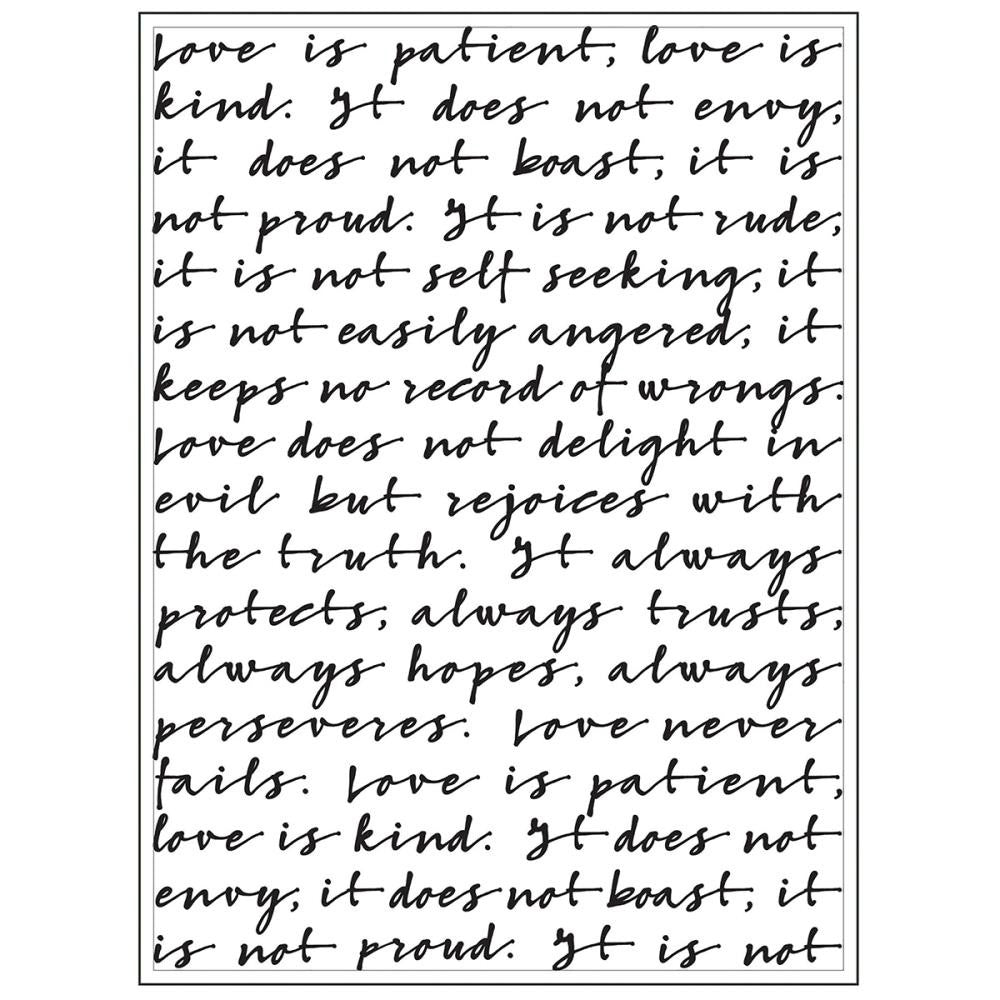 Love is patient, love is
kind. It does not envy,
it does not boast, it is
not proud. It is not rude,
it is not self seeking, it
is not easily angered, it
keeps no record of wrongs.
Love does not delight in
evil but rejoices with
the truth. It always
protects, always trusts,
always hopes, always
perseveres. Love never
fails. Love is patient,
love is kind. It does not
envy, it does not boast, it
is not proud. It is not